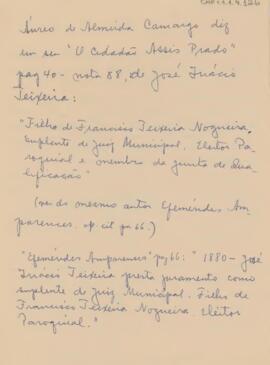 Áureo de Almeida Camargo diz
em seu "O Cidadão Assis Prado"
pag 40 - nota 88, de José Inácio
Teixeira:
"Filho de Francisco Teixeira Nogueira,
suplente de Juiz Municipal. Eleitor Pa-
roquial e membro da junta de Qua-
lificação"
(ver do mesmo autor Efemérides Am-
parenses. op. cit pg 66.)
"Efemérides Amparenses" pg 66: "1880 - José
Inácio Teixeira presta juramento como
suplente de Juiz Municipal. Filho de
Francisco Teixeira Nogueira Eleitor
Paroquial."